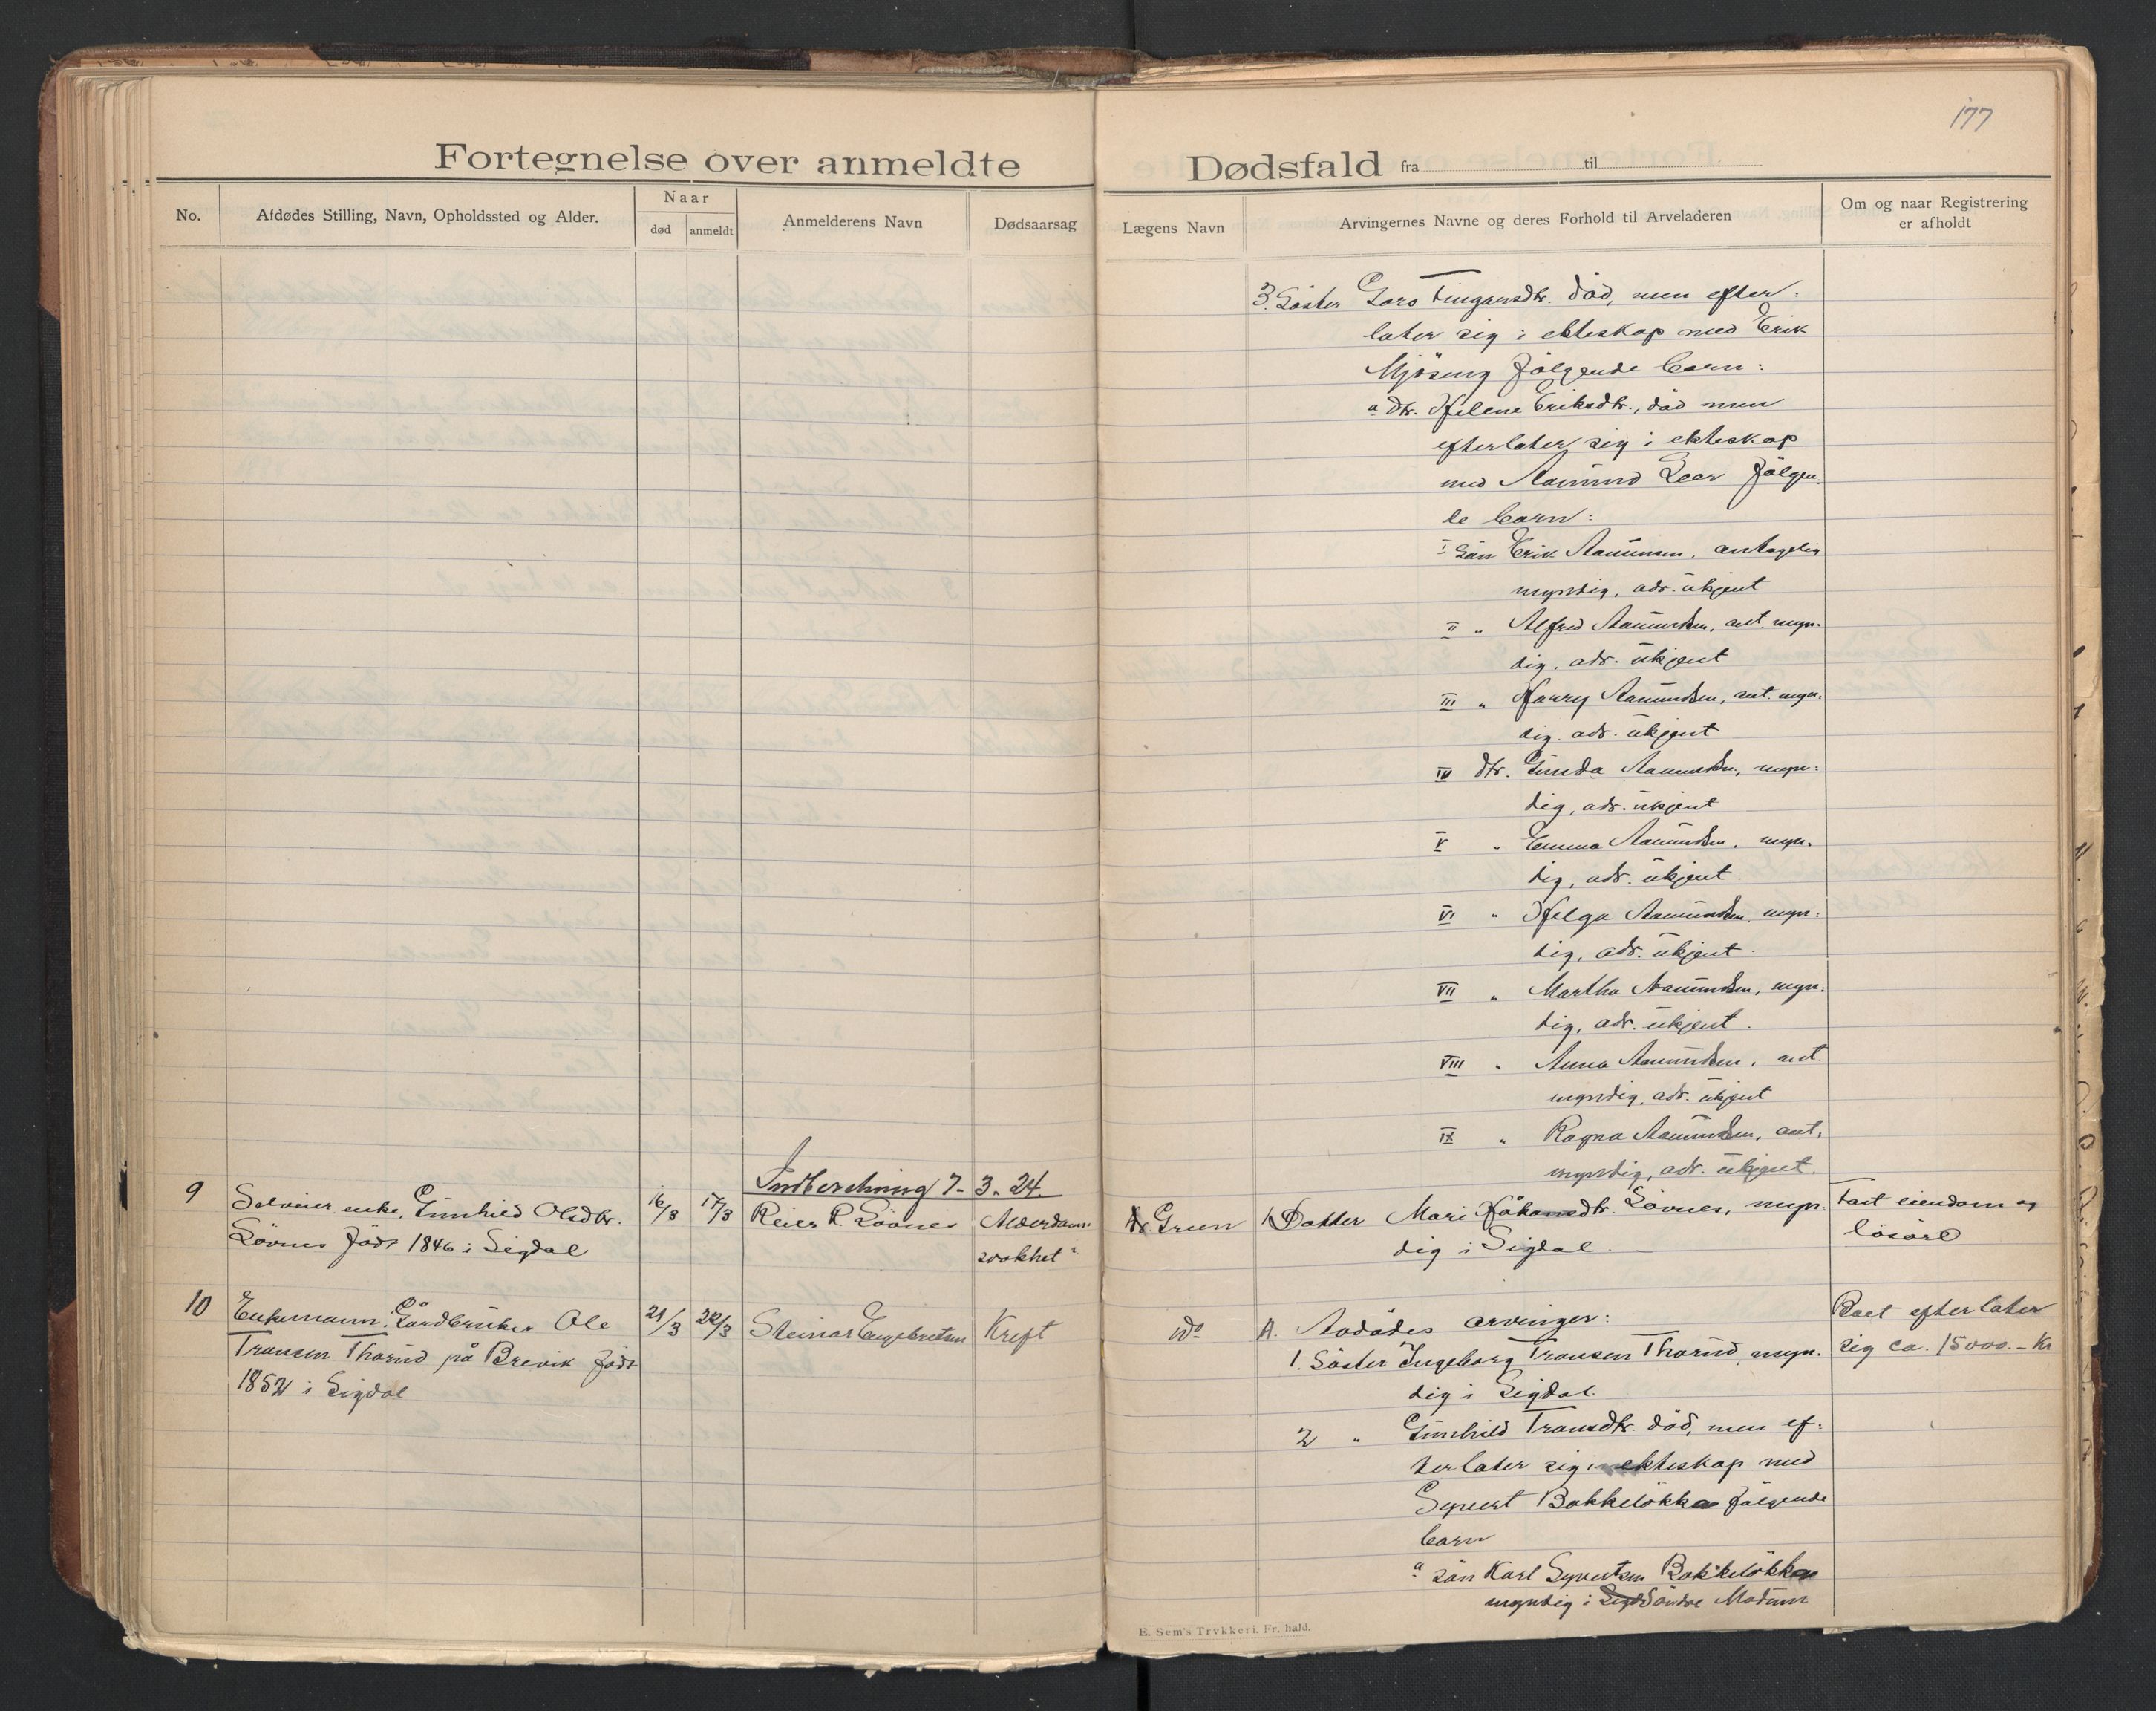 177
Fortegnelse over anmeldte Dødsfald fra til
No.
Afdødes Stilling, Navn, Opholdssted og Alder.
Naar
død
anmeldt
Anmelderens Navn
Dødsaarsag
Lægens Navn
Arvingernes Navne og deres Forhold til Arveladeren
Om og naar Registrering
er afholdt
3. Söster Goro död, men efter-
later sig i ekteskap med Erik
Mjösung følgende barn:
a Dtr. Helene Eriksdtr., död men
efterlater sig i ekteskap
med Aamund Leer følgen-
de barn:
I Sön Erik Aamunsen, antagelig
myndig, adr. ukjent
II " Alfred Aamundsen, ant. myn-
dig, adr. ukjent
III " Harry Aamundsen, ant. myn-
dig. adr. ukjent
IV dtr. Gunda Aamundsen, myn-
dig, adr. ukjent
V " Emma Aamundsen, myn-
dig, adr. ukjent.
VI " Helga Aamundsen, myn-
dig, adr. ukjent.
VII " Martha Aamundsen, myn-
dig, adr. ukjent.
VIII " Anna Aamundsen, ant.
myndig, adr. ukjent
IX " Ragna Aamundsen, ant.
myndig, adr. ukjent.
Indberetning 7-3-24.
9
Selveier enke, Gunhild Olsdtr.
Lövnes född 1846 i Sigdal
16/3
17/3
Reier R. Lövnes
Alderdoms-
svakhet
Dr. Gruen
1. Datter Mari Håkonsdtr. Lövnes, myn-
dig i Sigdal.
Fast eiendom og
lösöre
10
Enkemann, Gårdbruker Ole
Tronsen Thorud på Brevik född
1852 i Sigdal
21/3
22/3
Steinar Engebretsen
Kreft
ido
A. Avdödes arvinger:
1. Söster Ingeborg Tronsen Thorud, myn-
dig i Sigdal.
2 " Gunhild Tronsdtr. död, men ef-
terlater sig i ekteskap med
Syvert Bakkelökka følgende
barn
a sön Karl Syvertsen Bakkelökka
myndig i Söndre Modum
Boet efterlater
sig ca. 15000.- Kr
E. Sem's Trykkeri, Fr. hald.